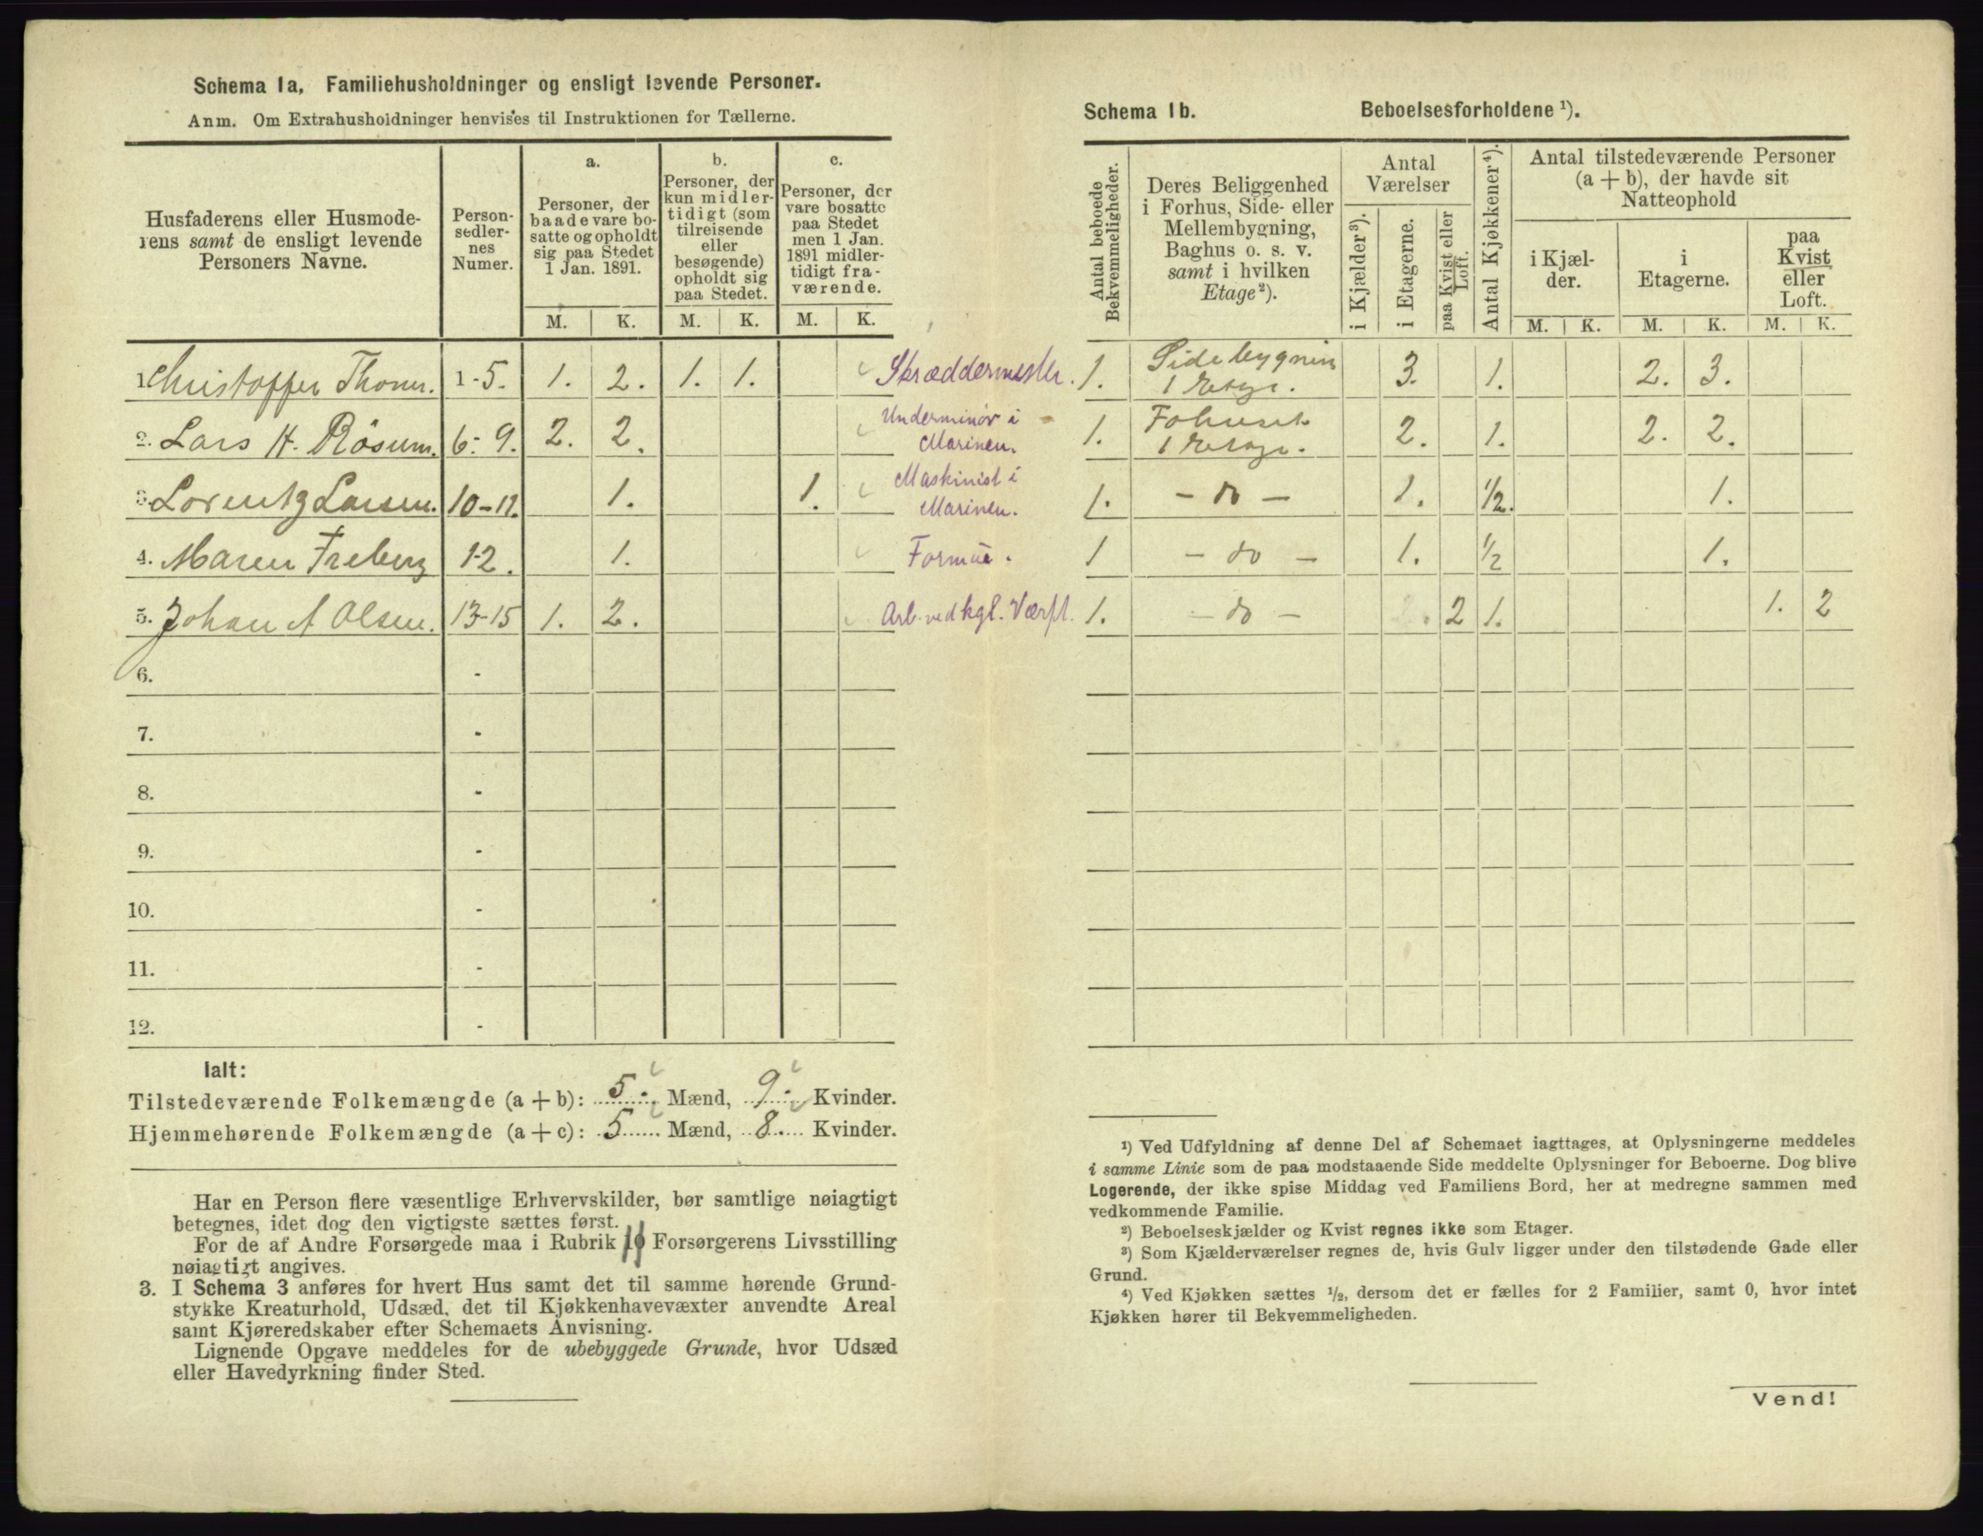 Schema 1a, Familiehusholdninger og ensligt levende Personer.
Anm. Om Extrahusholdninger henvises til Instruktionen for Tællerne.
Husfaderens eller Husmode-
rens samt de ensligt levende
Personers Navne.
Person-
sedler-
nes
Numer.
a.
Personer, der
baade vare bo-
satte og opholdt
sig paa Stedet
1 Jan. 1891.
b.
Personer, der
kun midler-
tidigt (som
tilreisende
eller
besøgende)
opholdt sig
paa Stedet.
c.
Personer, der
vare bosatte
paa Stedet
men 1 Jan.
1891 midler-
tidigt fra-
værende.
M. K. M. K. M. K.
1. Christoffer Thoms. 1-5. 1. 2. 1. 1. Skræddermester.
2. Lars H. Røsum. 6-9. 2. 2. Underminör i
Marinen.
3. Lorentz Larsen. 10-11. 1. 1. Maskinist i
Marinen.
4. Maren Freberg 12. 1. Formue.
5. Johan A Olsen. 13-15 1. 2. Arb. ved kgl. Værft.
6. -
7. -
8. -
9. -
10. -
11. -
12. -
Ialt:
Tilstedeværende Folkemængde (a + b): 5. Mænd, 9. Kvinder.
Hjemmehørende Folkemængde (a + c): 5 Mænd, 8. Kvinder.
Har en Person flere væsentlige Erhvervskilder, bør samtlige nøiagtigt
betegnes, idet dog den vigtigste sættes først.
For de af Andre Forsørgede maa i Rubrik 10 Forsørgerens Livsstilling
nøiagtigt angives.
3. I Schema 3 anføres for hvert Hus samt det til samme hørende Grund-
stykke Kreaturhold, Udsæd, det til Kjøkkenhavevæxter anvendte Areal
samt Kjøreredskaber efter Schemaets Anvisning.
Lignende Opgave meddeles for de ubebyggede Grunde, hvor Udsæd
eller Havedyrkning finder Sted.
Schema 1b. Beboelsesforholdene ¹).
Antal beboede
Bekvemmeligheder.
Deres Beliggenhed
i Forhus, Side- eller
Mellembygning,
Baghus o. s. v.
samt i hvilken
Etage²).
Antal
Værelser
i Kjælder³).
i Etagerne.
paa Kvist eller
Loft.
Antal Kjøkkener⁴).
Antal tilstedeværende Personer
(a + b), der havde sit
Natteophold
i Kjæl-
der.
i
Etagerne.
paa
Kvist
eller
Loft.
M. K. M. K. M. K.
1. Sidebygnin
1 Etage. 3. 1. 2. 3.
1. Fohuset
1 Etage. 2. 1. 2. 2.
1. - do - 1. 1/2. 1.
1 - do - 1. 1/2 1.
1. - do - 2 1. 1. 2
¹) Ved Udfyldning af denne Del af Schemaet iagttages, at Oplysningerne meddeles
i samme Linie som de paa modstaaende Side meddelte Oplysninger for Beboerne. Dog blive
Logerende, der ikke spise Middag ved Familiens Bord, her at medregne sammen med
vedkommende Familie.
²) Beboelseskjælder og Kvist regnes ikke som Etager.
³) Som Kjælderværelser regnes de, hvis Gulv ligger under den tilstødende Gade eller
Grund.
⁴) Ved Kjøkken sættes ½, dersom det er fælles for 2 Familier, samt 0, hvor intet
Kjøkken hører til Bekvemmeligheden.
Vend!